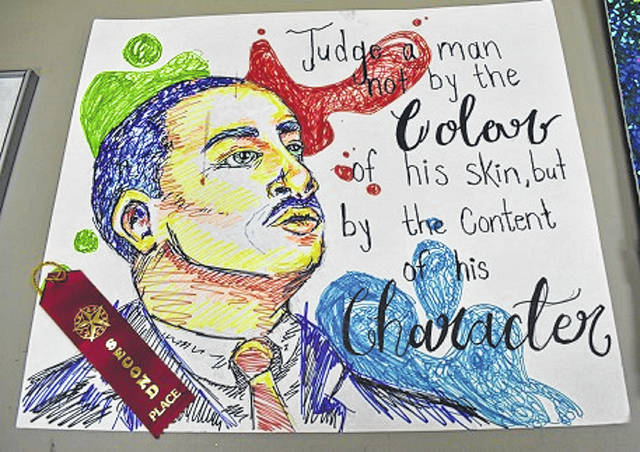 Judge a man
not by the
Color
of his skin, but
by the Content
of his
Character
SECOND
PLACE